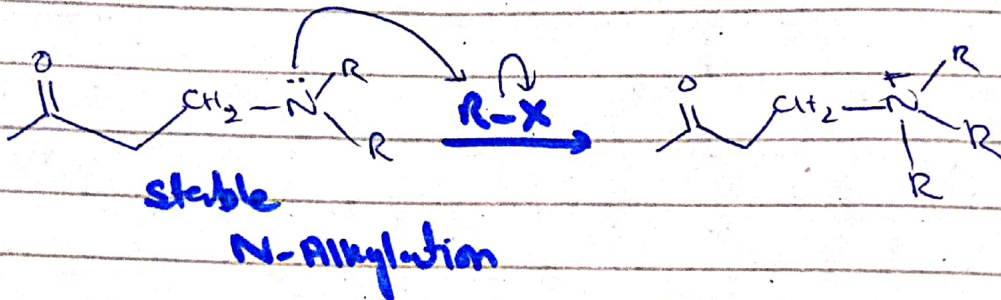 O CH₂ – N̈ R R R–X O CH₂ – N⁺ R R R
stable
N-Alkylation